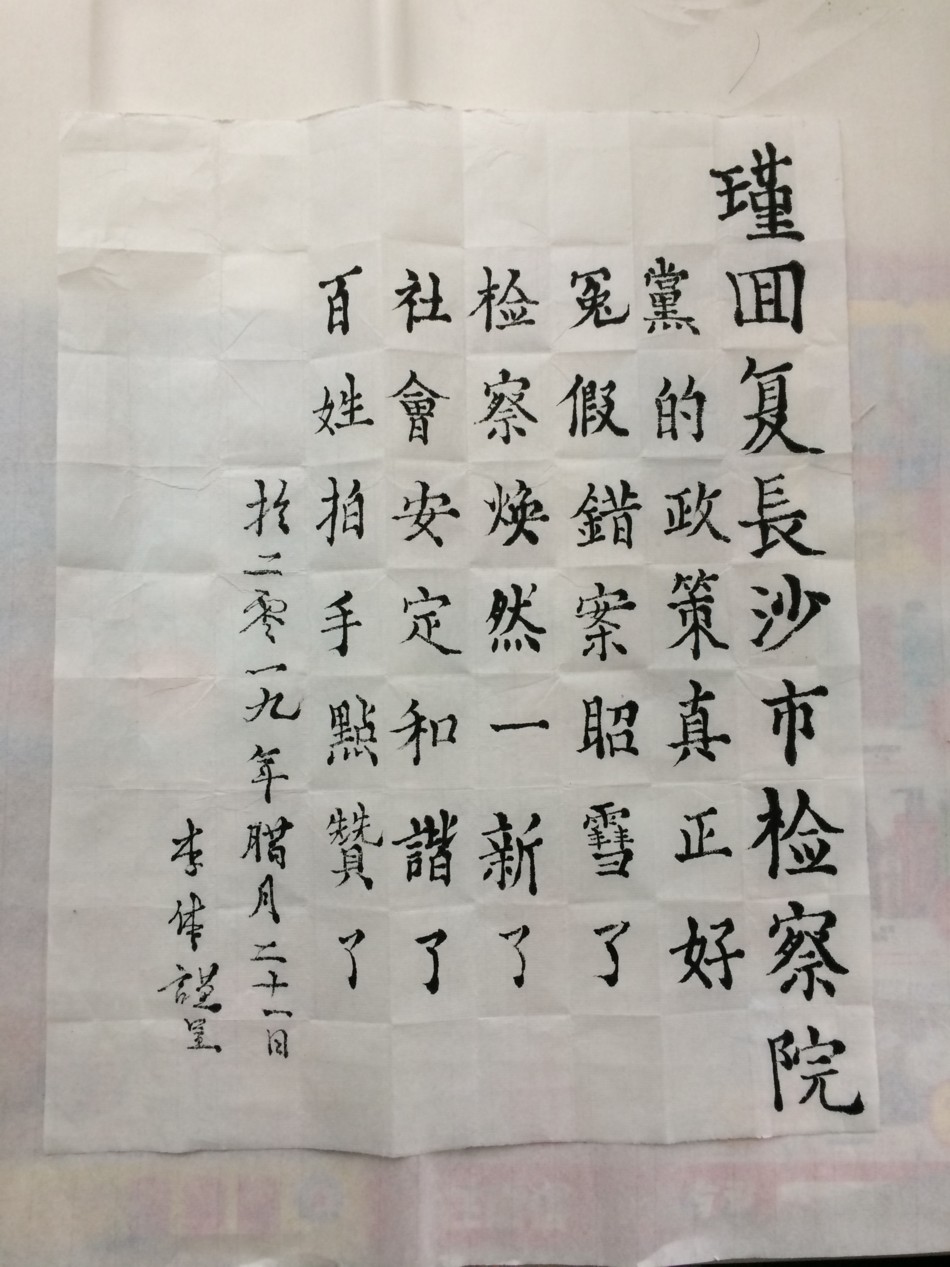 瑾囬复長沙市检察院
黨的政策真正好
冤假錯案昭雪了
检察焕然一新了
社會安定和諧了
百姓拍手點贊了
扵二零一九年腊月二十一日
李体謹呈